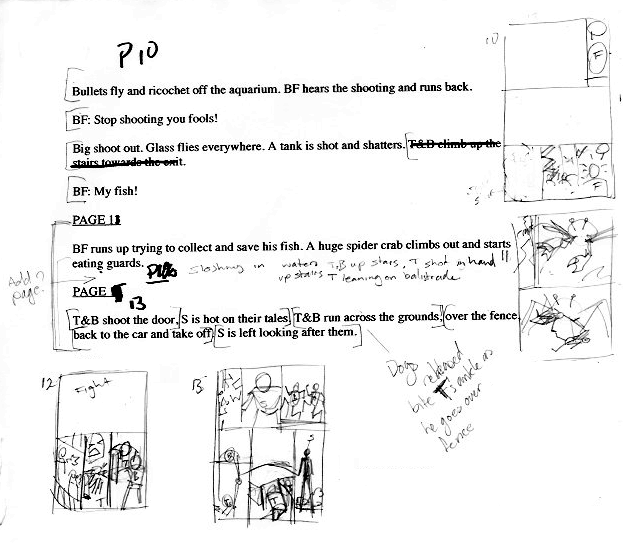 P10
Bullets fly and ricochet off the aquarium. BF hears the shooting and runs back.
BF: Stop shooting you fools!
Big shoot out. Glass flies everywhere. A tank is shot and shatters. T&B climb up the
stairs towards the exit.
BF: My fish!
PAGE 11
BF runs up trying to collect and save his fish. A huge spider crab climbs out and starts
eating guards. slashing in water. T,B up stairs, T shot in hand
up stairs T leaning on balistrade
Add?
page?
PAGE
13
T&B shoot the door. S is hot on their tales. T&B run across the grounds, over the fence
back to the car and take off. S is left looking after them.
Dogs released
bite T's ankle as
he goes over
fence
10
F
F
11
12
Fight
13
S
B
T